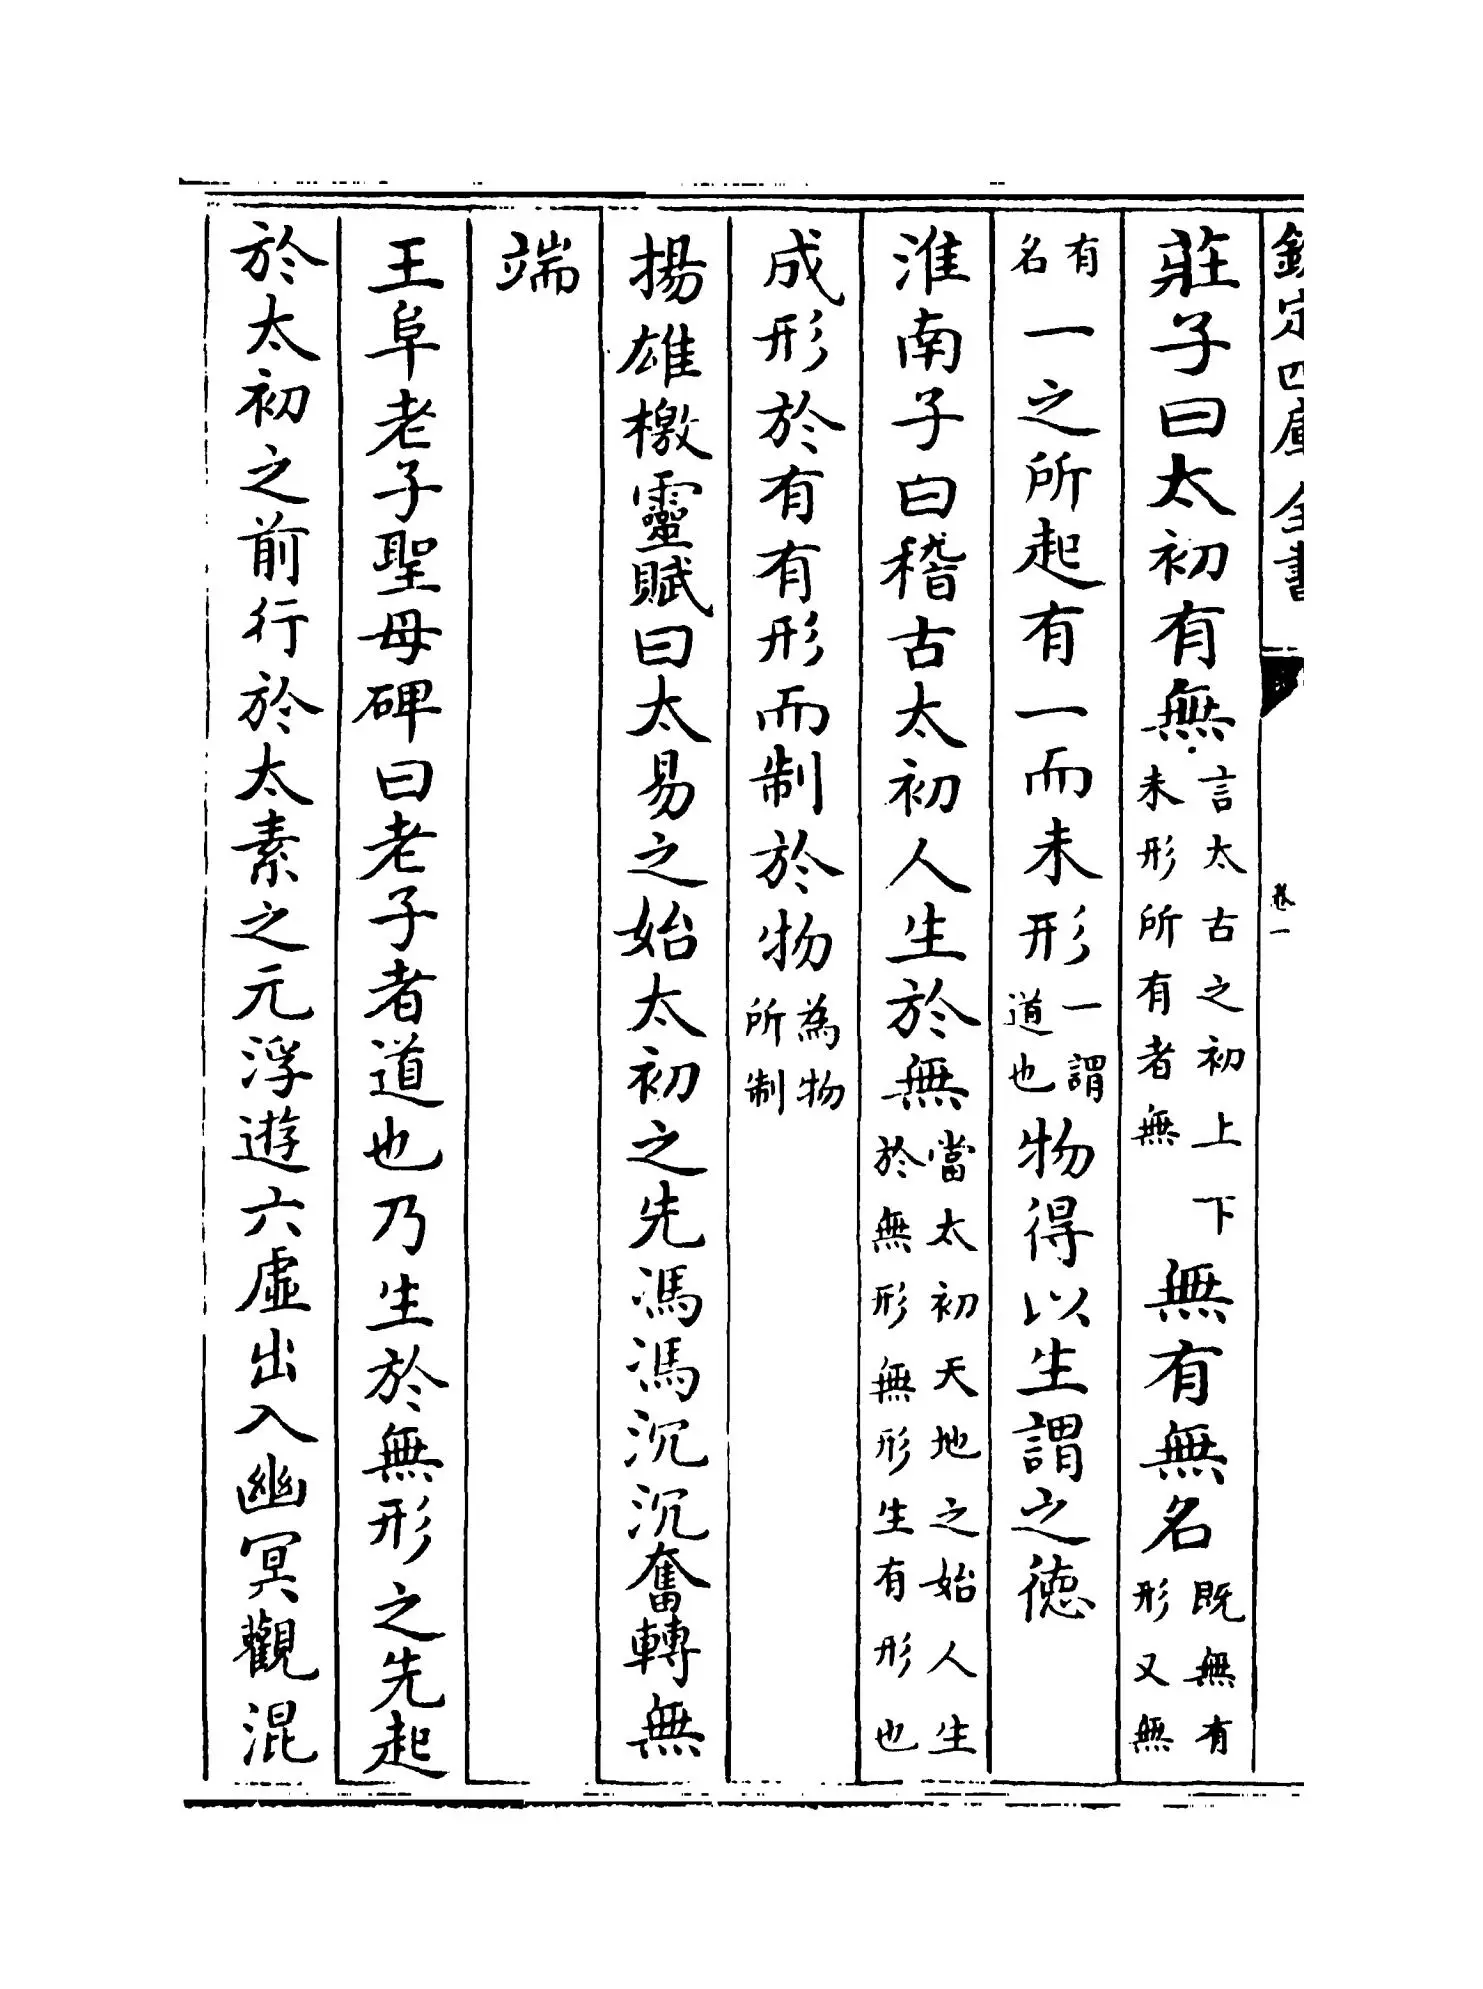 欽定四庫全書
卷一
莊子曰太初有無言太古之初上下未形所有者無無有無名既無有形又無
有名一之所起有一而未形一謂道也物得以生謂之徳
淮南子曰稽古太初人生於無當太初天地之始人生於無形無形生有形也
成形於有有形而制於物為物所制
揚雄檄靈賦曰太易之始太初之先馮馮沉沉奮轉無
端
王阜老子聖母碑曰老子者道也乃生於無形之先起
於太初之前行於太素之元浮遊六虛出入幽冥觀混